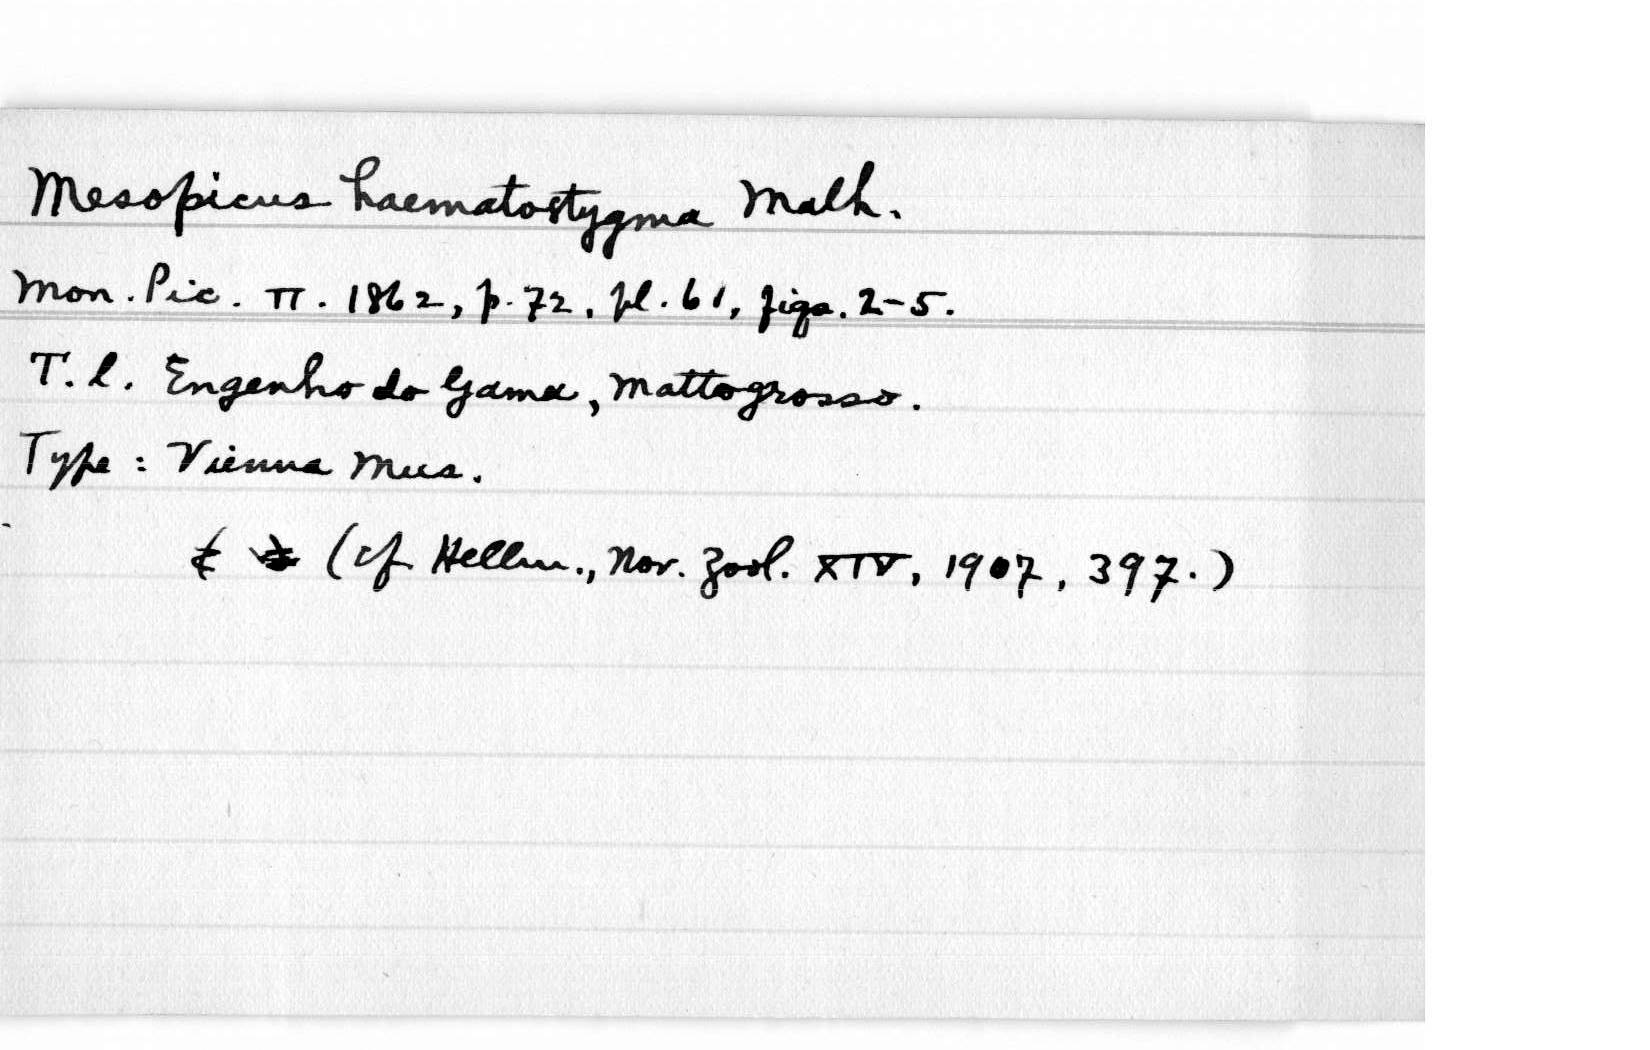 Mesopicus haematostygma Malh.
Mon. Pic. II. 1862, p. 72, pl. 61, figs. 2-5.
T. l. Engenho do Gama, Mattogrosso.
Type: Vienna Mus.
(cf Hellm., Nov. Zool. XIV, 1907, 397.)